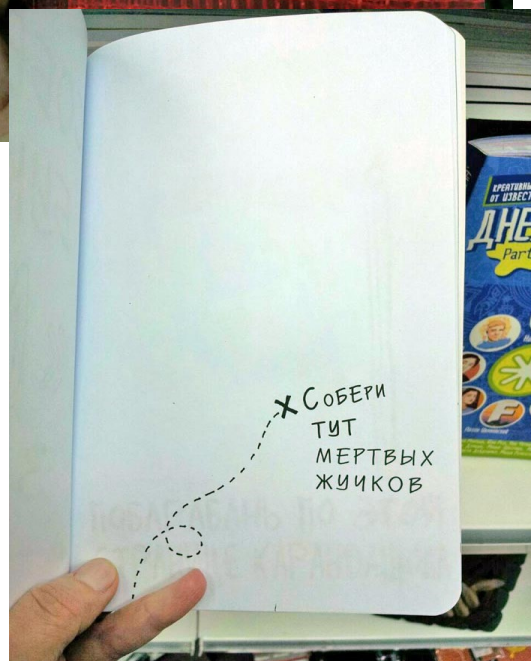 Х СОБЕРИ
ТУТ
МЕРТВЫХ
ЖУЧКОВ
КРЕАТИВН
ОТ ИЗВЕСТ
ДНЕ
Part